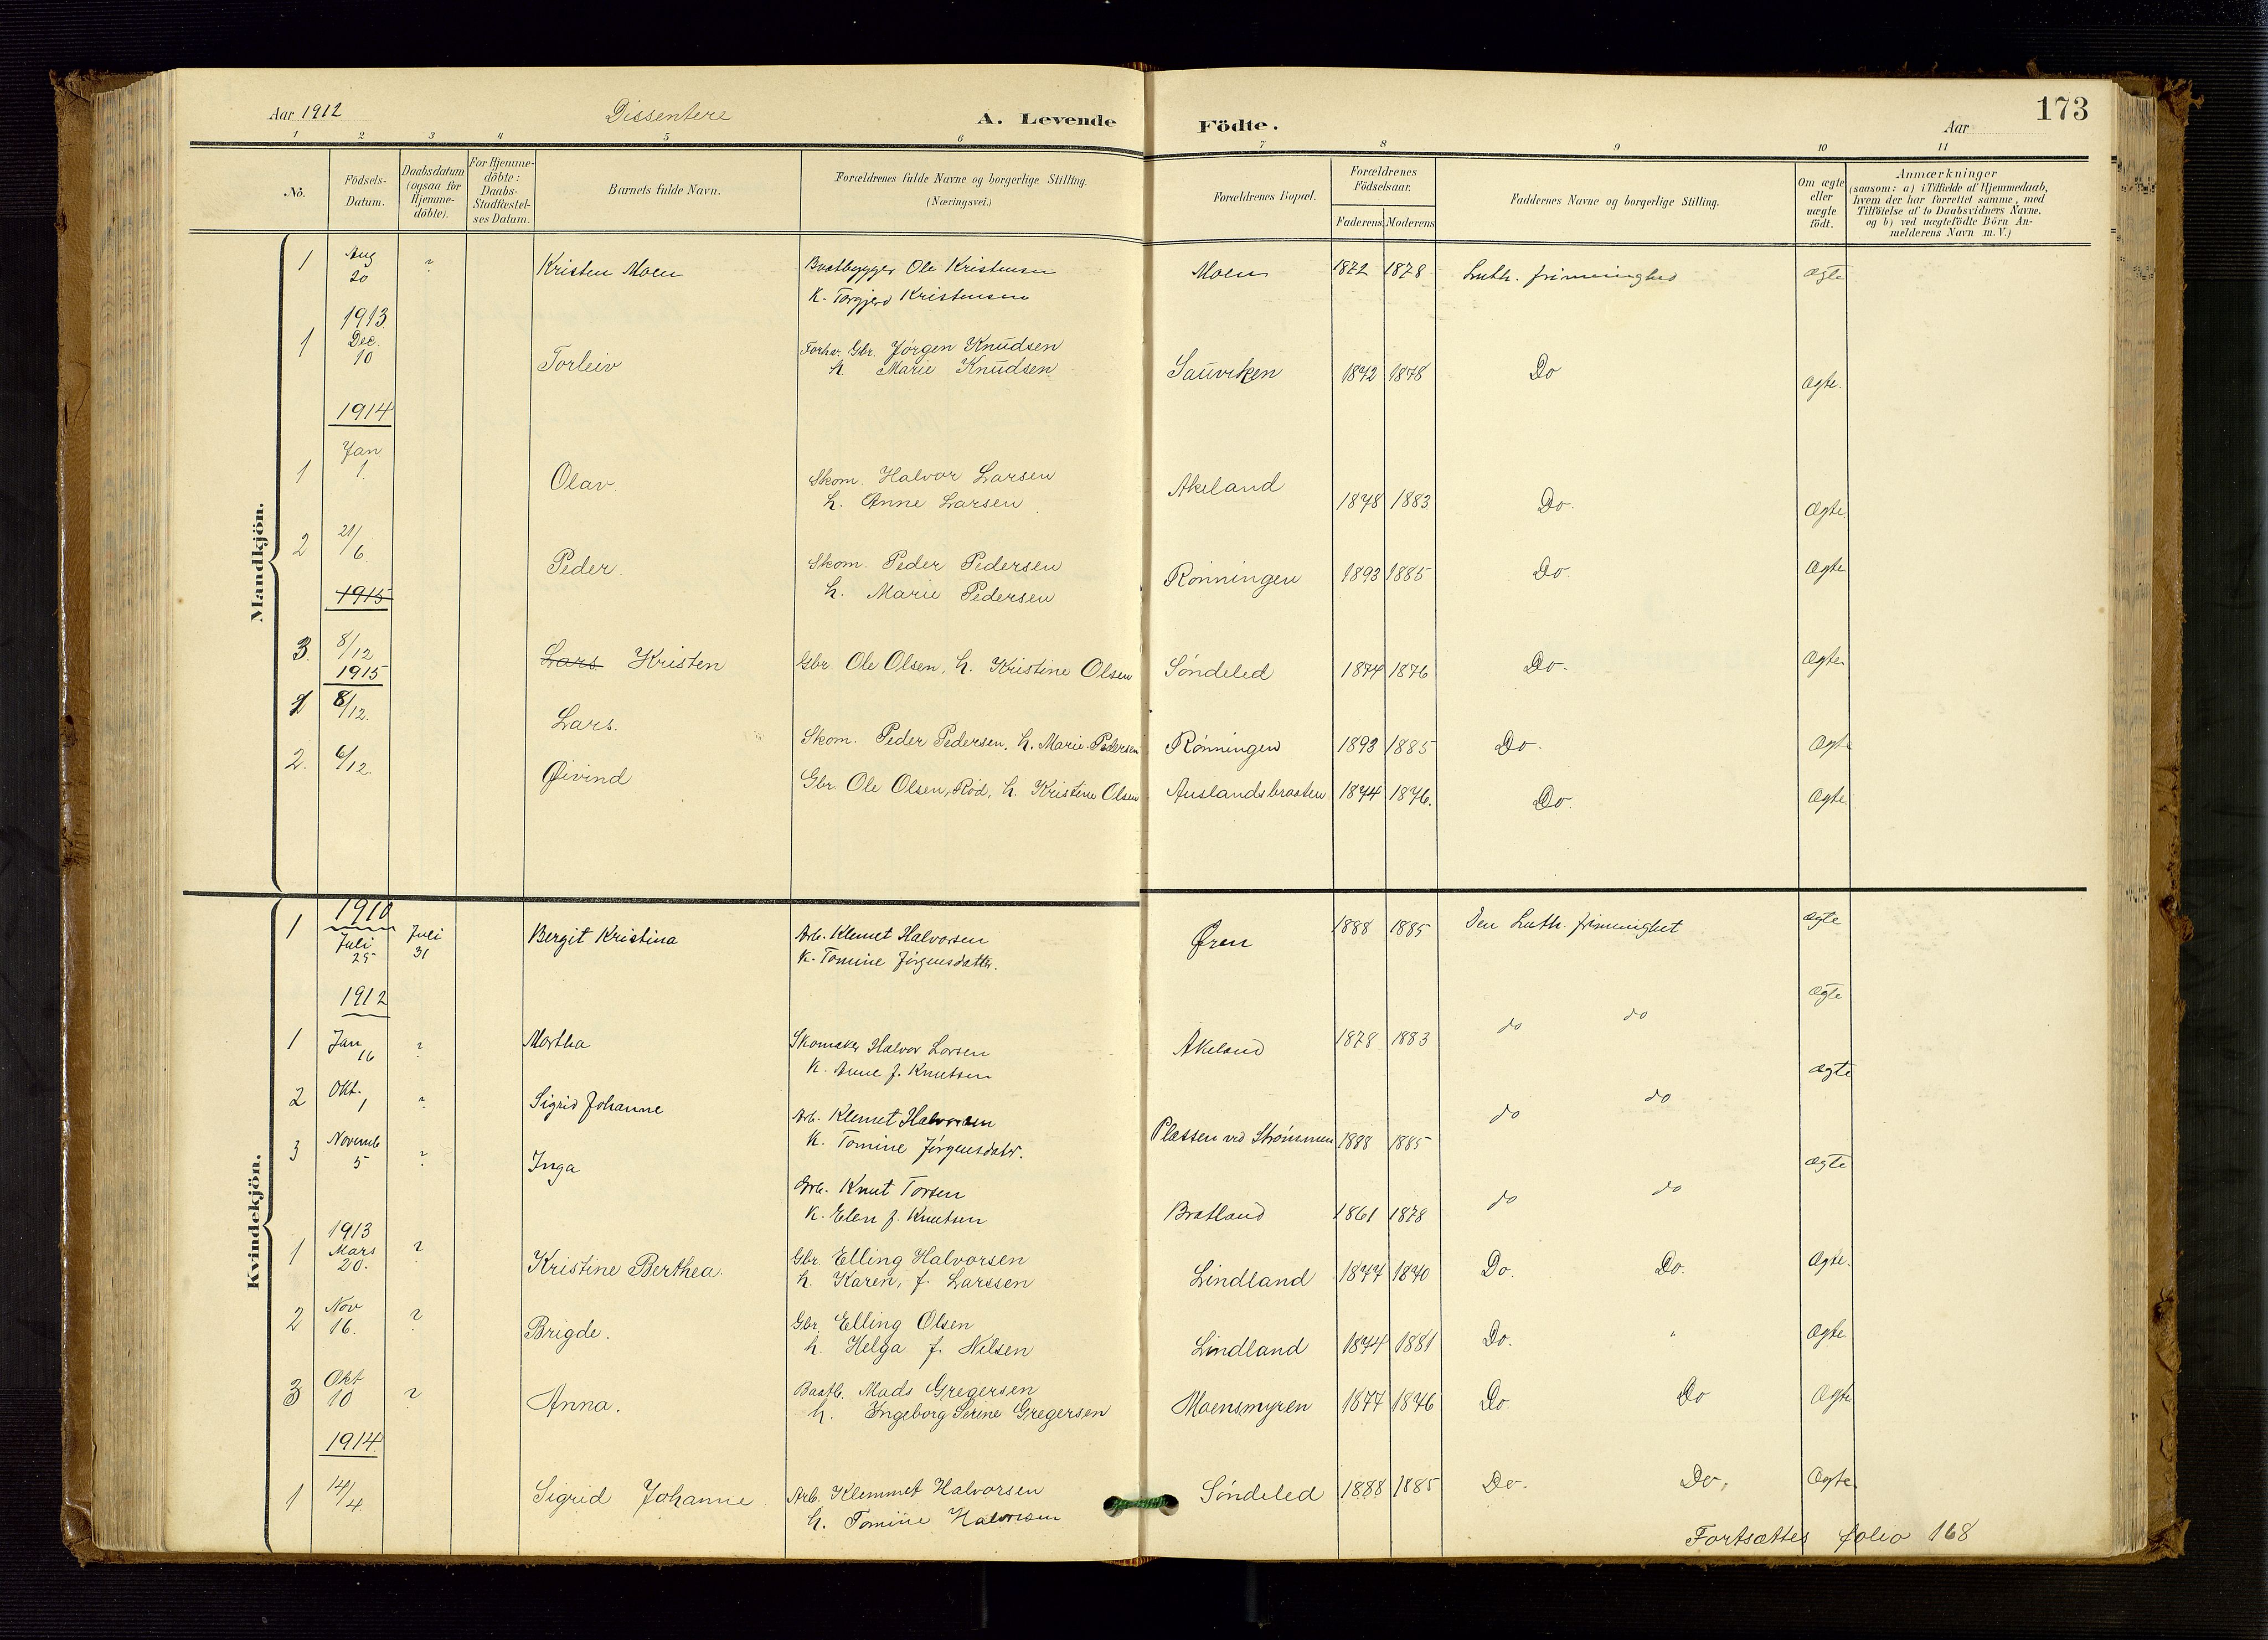 Aar 1912 Dissentere A. Levende Födte. Aar 173
1 2 3 4 5 6 7 8 9 10 11
Nö.
Födsels-Datum.
Daabsdatum (ogsaa for Hjemme-döbte).
For Hjemme-döbte: Daabs-Stadfæstel-ses Datum.
Barnets fulde Navn.
Forældrenes fulde Navne og borgerlige Stilling. (Næringsvei.)
Forældrenes Bopæl.
Forældrenes Födselsaar.
Faderens Moderens
Faddernes Navne og borgerlige Stilling.
Om ægte eller uægte födt.
Anmærkninger
(saasom: a) i Tilfælde af Hjemmedaab,
hvem der har forrettet samme, med
Tilföielse af to Daabsvidners Navne.
og b) ved uægtefödte Börn An-
melderens Navn m. V.)
Mandkjön.
1 Aug 20 ? Kristen Moen Baatbygger Ole Kristensen Moen 1872 1878 Luth. frimenighed ægte
K. Torgjerd Kristensen
1913
1 Dec. 10 Torleiv Forhv. Gbr. Jørgen Knudsen
h Marie Knudsen Sauviken 1872 1878 Do Ægte.
1914
1 Jan 1. Olav. Skom. Halvor Larsen Akeland 1878 1883 Do. Ægte.
h. Anne Larsen
2 21/6. Peder. Skom. Peder Pedersen Rønningen 1893 1885 Do. Ægte
h. Marie Pedersen
1915
3. 8/12 Lars Kristen Gbr. Ole Olsen, h. Kristine Olsen Søndeled 1874 1876 Do. Ægte
1915
1 8/12. Lars. Skom. Peder Pedersen, h. Marie Pedersen Rønningen 1893 1885 Do. Ægte
2. 6/12. Øivind Gbr. Ole Olsen, Rød, h. Kristine Olsen Auslandsbraaten 1874 1876. Do. Ægte
Kvindekjön.
1910
1 Juli 25 Juli 31 Bergit Kristina Arb. Klemet Halvorsen Øren 1888 1885 Den Luth. frimenighet ægte
K. Tomine Jørgensdatter.
1912
1 Jan 16 ? Martha Skomaker Halvor Larsen Akeland 1878 1883 do do ægte
K. Anne f. Knutsen
2 Okt. 1 ? Sigrid Johanne Arb. Klemet Halvorsen Plassen ved Strømmen 1888 1885 do do ægte
K. Tomine Jørgensdatr.
3 Novemb 5 ? Inga Knut Torsen Bratland 1861 1878 do do ægte
K. Elen f. Knutsen
1913
1 Mars 20. ? Kristine Berthea. Gbr. Elling Halvorsen Lindland 1877 1870 Do. Do. Ægte.
h. Karen, f. Larssen
2 Nov 16. ? Brigde. Gbr. Elling Olsen Lindland 1874 1881 Do. " Ægte
h. Helga f. Nilsen
3 Okt 10 ? Anna. Baatb. Mads Gregersen Moensmyren 1874 1876 Do. Do Ægte
h. Ingeborg Serine Gregersen
1914
1 14/4. Sigrid Johanne. Arb. Klemmet Halvorsen Søndeled 1888 1885 Do. Do. Ægte
h. Tomine Halvorsen
Fortsættes folio 168